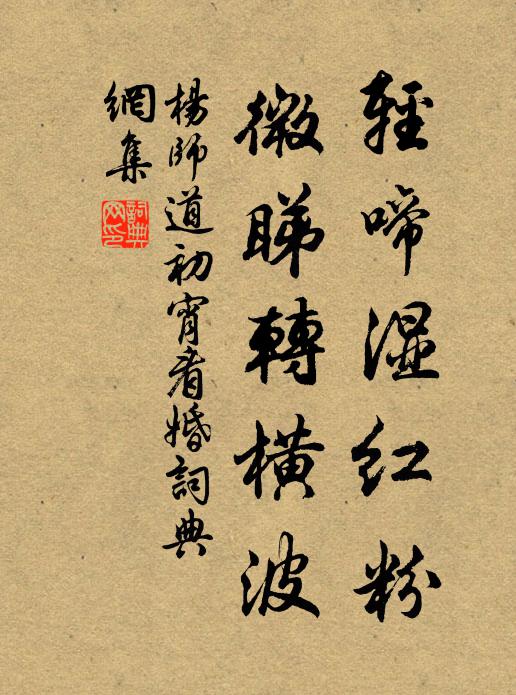 輕啼濕紅粉
微睇轉橫波
楊師道初宵看婚詞典
網集
詞典
网印